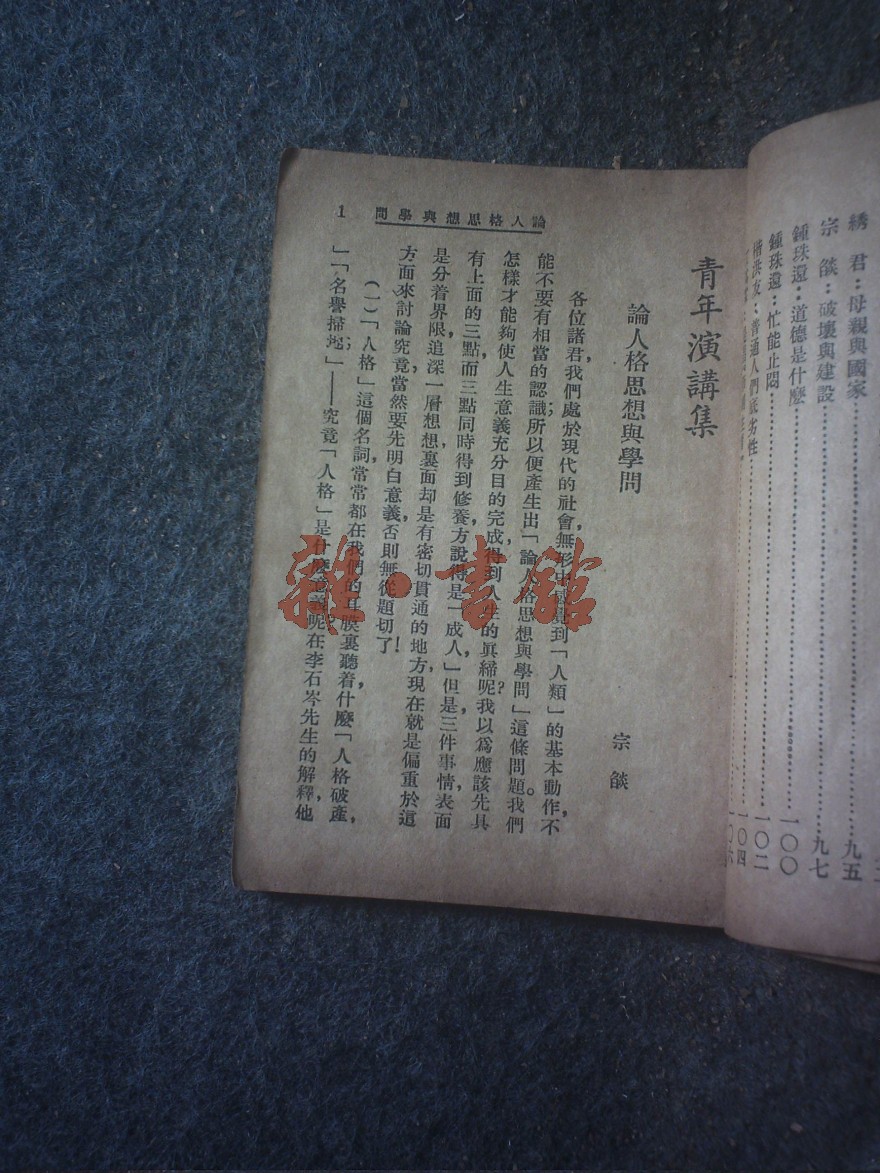 綉 君：母親與國家…………九五
宗 燄：破壞與建設…………九七
鍾珠遠：道德是什麽…………一〇〇
鍾珠遠：忙能止悶…………一〇二
楷洪友：普通人們底劣性…………一〇四
一〇六
論人格思想與學問 1
青年演講集
論人格思想與學問
宗 燄
各位諸君，我們處於現代的社會，無形中感覺到「人類」的基本動作，不
能不要有相當的認識；所以便產生出「論人格思想與學問」這條問題。我們
怎樣才能夠使人生意義充分目的完成，得到人生的眞締呢？我以爲應該先具
有上面的三點，而三點同時得到修養，方說得是一成人」但是三件事情，表面
是分着界限，追深一層想想，裏面却是有密切貫通的地方，現在就是偏重於這
方面來討論究竟，當然要先明白意義，否則無從題切了！
（一）「人格」這個名詞，常常都在我們的耳膜裏聽着什麽「人格破產，
」「名譽掃地；」——究竟「人格」是什麽意義呢？在李石岑先生的解釋，他
雜·書館